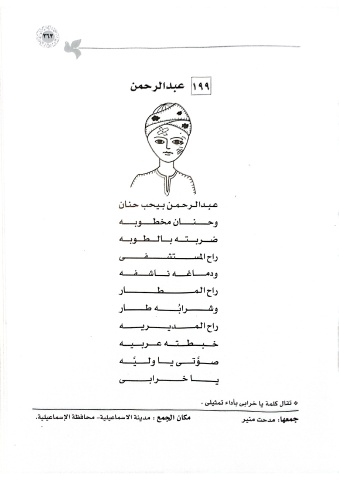 ٣٦٢
١٩٩ عبدالرحمن
عبدالرحمن بيحب حنان
وحنان مخطوبه
ضربته بالطوبه
راح المستشفى
ودماغه ناشفه
راح المطار
وشرابُه طار
راح المديريه
خبطته عربيه
صوَّتى يا وليَّه
يا خرابى
* تقال كلمة يا خرابى بأداء تمثيلى .
جمعها: مدحت منير
مكان الجمع : مدينة الاسماعيلية- محافظة الإسماعيلية.